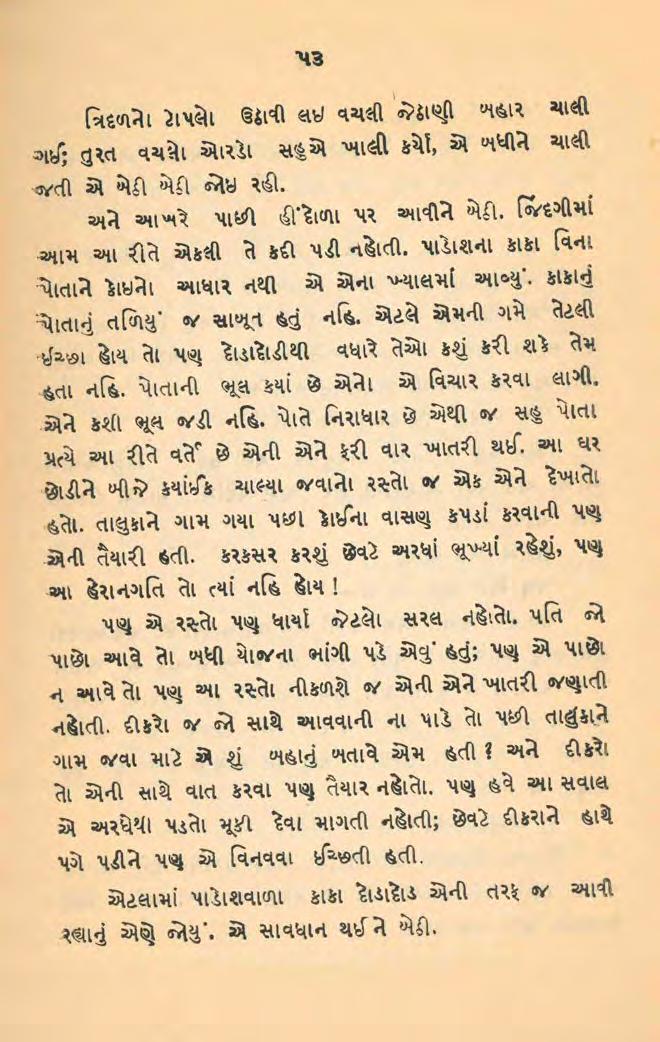 ૫૩
ત્રિદળનો ટોપલો ઉઠાવી લઇ વચલી જેઠાણી બહાર ચાલી
ગઈ; તુરત વચલો ઓરડો સહુએ ખાલી કર્યો, એ બધીને ચાલી
જતી એ બેઠી બેઠી જોઇ રહી.
અને આખરે પાછી હીંદોળા પર આવીને બેઠી. જિંદગીમાં
આમ આ રીતે એકલી તે કદી પડી નહોતી. પાડોશના કાકા વિના
પોતાને કોઇનો આધાર નથી એ એના ખ્યાલમાં આવ્યું. કાકાનું
પોતાનું તળિયું જ સાબૂત હતું નહિ. એટલે એમની ગમે તેટલી
ઈચ્છા હોય તો પણ દોડાદોડીથી વધારે તેઓ કશું કરી શકે તેમ
હતા નહિ. પોતાની ભૂલ કયાં છે એનો એ વિચાર કરવા લાગી.
એને કશી ભૂલ જડી નહિ. પોતે નિરાધાર છે એથી જ સહુ પોતા
પ્રત્યે આ રીતે વર્તે છે એની એને ફરી વાર ખાતરી થઈ. આ ઘર
છોડીને બીજે કયાંઈક ચાલ્યા જવાનો રસ્તો જ એક એને દેખાતો
હતો. તાલુકાને ગામ ગયા પછી કોઈના વાસણ કપડાં કરવાની પણ
એની તૈયારી હતી. કરકસર કરશું છેવટે અરધાં ભૂખ્યાં રહેશું, પણ
આ હેરાનગતિ તો ત્યાં નહિ હોય !
પણ એ રસ્તો પણ ધાર્યા જેટલો સરલ નહોતો. પતિ જો
પાછો આવે તો બધી યોજના ભાંગી પડે એવું હતું; પણ એ પાછો
ન આવે તો પણ આ રસ્તો નીકળશે જ એની એને ખાતરી જણાતી
નહોતી. દીકરો જ જો સાથે આવવાની ના પાડે તો પછી તાલુકાને
ગામ જવા માટે એ શું બહાનું બતાવે એમ હતી ? અને દીકરો
તો એની સાથે વાત કરવા પણ તૈયાર નહોતો. પણ હવે આ સવાલ
એ અરધેથી પડતો મૂકી દેવા માગતી નહોતી; છેવટે દીકરાને હાથે
પગે પડીને પણ એ વિનવવા ઈચ્છતી હતી.
એટલામાં પાડોશવાળા કાકા દોડાદોડ એની તરફ જ આવી
રહ્યાનું એણે જોયું. એ સાવધાન થઈ ને બેઠી.